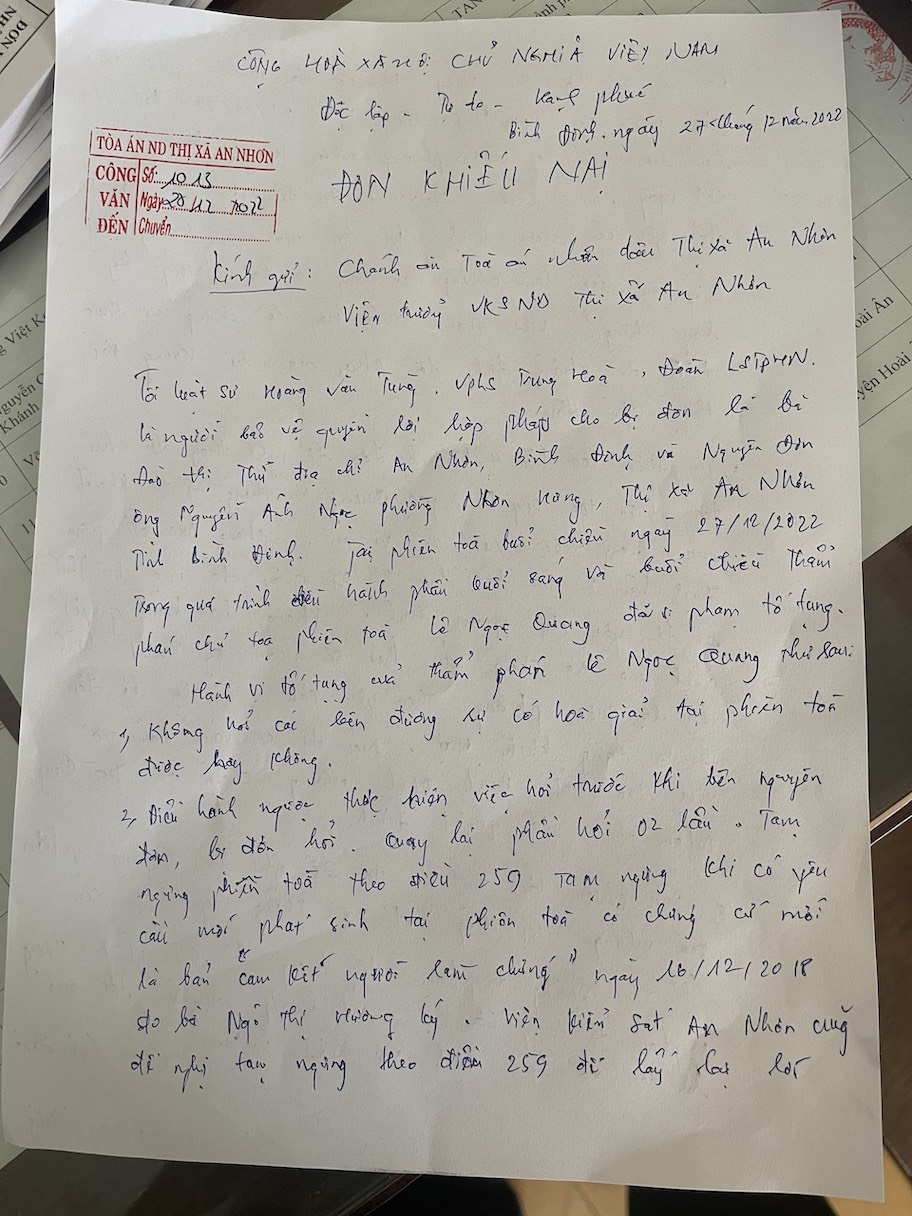 CỘNG HOÀ XÃ HỘI CHỦ NGHĨA VIỆT NAM
Độc lập - Tự do - Hạnh phúc
Bình Định, ngày 27 tháng 12 năm 2022
TÒA ÁN ND THỊ XÃ AN NHƠN
CÔNG VĂN ĐẾN
Số: 1013
Ngày 28/12/2022
Chuyển
ĐƠN KHIẾU NẠI
Kính gửi: Chánh án Toà án nhân dân Thị xã An Nhơn
Viện trưởng VKSND Thị xã An Nhơn
Tôi luật sư Hoàng Văn Tùng, VPLS Trung Hoà, Đoàn LSTPHN.
là người bảo vệ quyền lợi hợp pháp cho bị đơn là bà
Đào Thị Thử địa chỉ An Nhơn, Bình Định và Nguyên đơn
ông Nguyễn Ánh Ngọc phường Nhơn Hưng, Thị xã An Nhơn
Tỉnh Bình Định. Tại phiên toà buổi chiều ngày 27/12/2022
Trong quá trình điều hành phần buổi sáng và buổi chiều Thẩm
phán chủ toạ phiên toà Lê Ngọc Quang đã vi phạm tố tụng.
Hành vi tố tụng của thẩm phán Lê Ngọc Quang như sau:
1, Không hỏi các bên đương sự có hoà giải tại phiên toà
được hay không.
2, Điều hành ngược thực hiện việc hỏi trước khi bên nguyên
đơn, bị đơn hỏi. Quay lại phần hỏi 02 lần. Tạm
ngừng phiên toà theo điều 259 Tạm ngừng khi có yêu
cầu mới phát sinh tại phiên toà có chứng cứ mới
là bản "cam kết người làm chứng" ngày 16/12/2018
do bà Ngô Thị Hương ký. Viện kiểm sát An Nhơn cũng
đề nghị tạm ngừng theo điều 259 để lấy lại lời